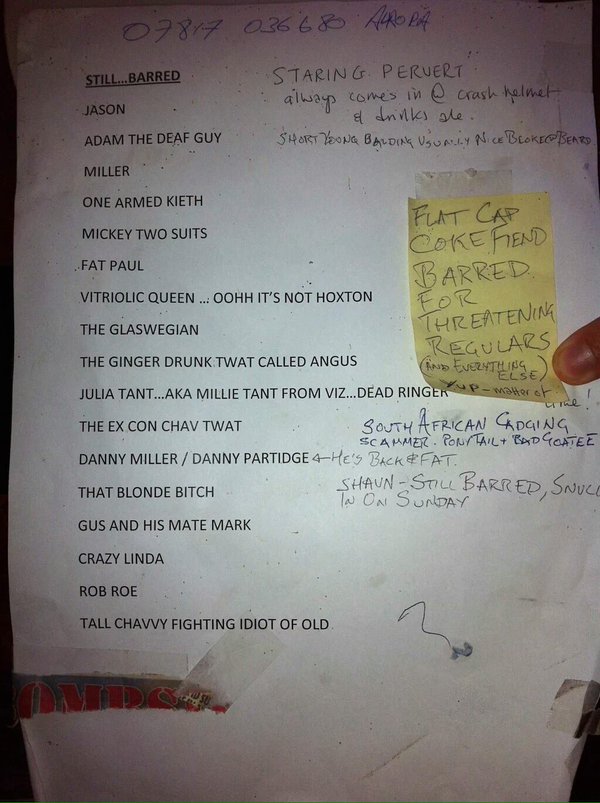 07817 036680 AURORA
STILL...BARRED
STARING PERVERT
always comes in @ crash helmet
& drinks ale.
JASON
ADAM THE DEAF GUY
SHORT YOUNG BALDING USUALLY NICE BLOKE @ BEARD
MILLER
ONE ARMED KIETH
MICKEY TWO SUITS
FAT PAUL
VITRIOLIC QUEEN ... OOHH IT'S NOT HOXTON
THE GLASWEGIAN
THE GINGER DRUNK TWAT CALLED ANGUS
JULIA TANT...AKA MILLIE TANT FROM VIZ...DEAD RINGER
FLAT CAP
COKE FIEND
BARRED
FOR
THREATENING
REGULARS
(AND EVERYTHING
ELSE)
YUP - matter of
time!
THE EX CON CHAV TWAT
SOUTH AFRICAN CADGING
SCAMMER. PONYTAIL + BAD GOATEE
DANNY MILLER / DANNY PARTIDGE ← HE'S BACK & FAT.
THAT BLONDE BITCH
SHAUN - STILL BARRED,
IN ON SUNDAY
GUS AND HIS MATE MARK
CRAZY LINDA
ROB ROE
TALL CHAVVY FIGHTING IDIOT OF OLD